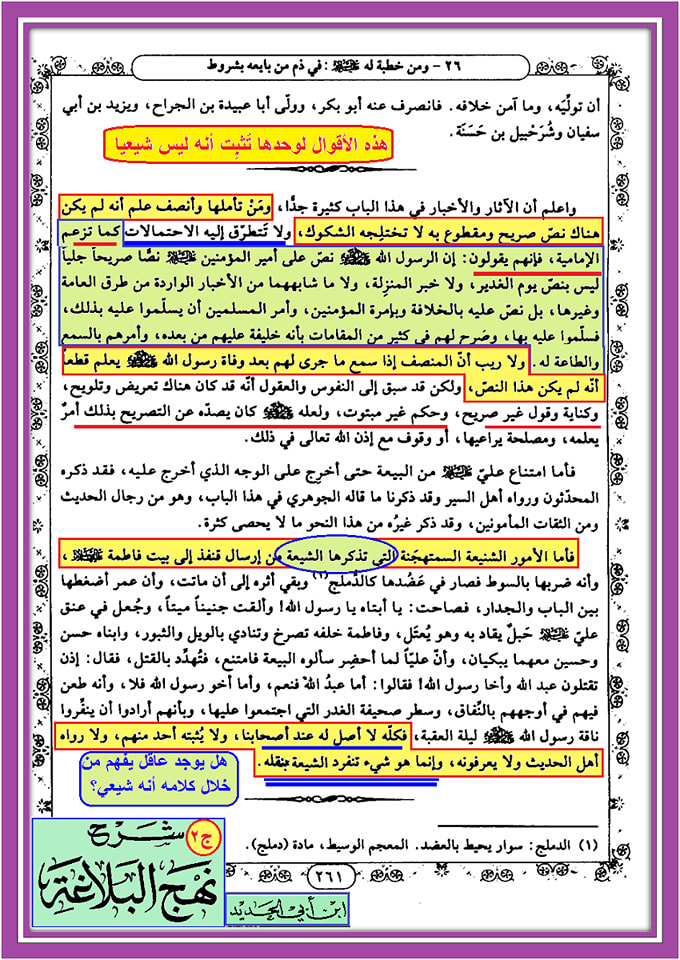 ٢٦ - ومن خطبة له ﷺ : في ذم من بايعه بشروط
أن تولِّيَه، وما آمن خلافه. فانصرف عنه أبو بكر، وولّى أبا عبيدة بن الجراح، ويزيد بن أبي
سفيان وشُرَحْبيل بن حَسَنَة.
هذه الأقوال لوحدها تُثبِت أنه ليس شيعيا
واعلم أن الآثار والأخبار في هذا الباب كثيرة جدًّا، ومَنْ تأملها وأنصف علم أنه لم يكن
هناك نصّ صريح ومقطوع به لا تختلِجه الشكوك، ولا تَتطرّق إليه الاحتمالات كما تزعم
الإمامية، فإنهم يقولون: إن الرسول ﷺ نصّ على أمير المؤمنين ﷺ نصًّا صريحاً جلياً
ليس بنصّ يوم الغدير، ولا خبر المنزِلة، ولا ما شابههما من الأخبار الواردة من طرق العامة
وغيرها، بل نصّ عليه بالخلافة وبإمرة المؤمنين، وأمر المسلمين أن يسلّموا عليه بذلك،
فسلّموا عليه بها، وصَرح لهم في كثير من المقامات بأنه خليفة عليهم من بعده، وأمرهم بالسمع
والطاعة له. ولا ريب أنّ المنصف إذا سمع ما جرى لهم بعد وفاة رسول الله ﷺ يعلم قطعاً
أنّه لم يكن هذا النصّ، ولكن قد سبق إلى النفوس والعقول أنّه قد كان هناك تعريض وتلويح،
وكناية وقول غير صريح، وحكم غير مبتوت، ولعله ﷺ كان يصدّه عن التصريح بذلك أمرٌ
يعلمه، ومصلحة يراعيها، أو وقوف مع إذن الله تعالى في ذلك.
فأما امتناع عليّ ﷺ من البيعة حتى أخرج على الوجه الذي أخرج عليه، فقد ذكره
المحدّثون ورواه أهل السير وقد ذكرنا ما قاله الجوهري في هذا الباب، وهو من رجال الحديث
ومن الثقات المأمونين، وقد ذكر غيرُه من هذا النحو ما لا يحصى كثرة.
فأما الأمور الشنيعة المستهجَنة التي تذكرها الشيعة من إرسال قنفذ إلى بيت فاطمة ﷺ،
وأنه ضربها بالسوط فصار في عَضُدها كالدُّملج (١) وبقي أثره إلى أن ماتت، وأن عمر أضغطها
بين الباب والجدار، فصاحت: يا أبتاه يا رسول الله! وألقت جنيناً ميتاً، وجُعل في عنق
عليّ ﷺ حَبلٌ يقاد به وهو يُعتَل، وفاطمة خلفه تصرخ وتنادي بالويل والثبور، وابناه حسن
وحسين معهما يبكيان، وأنّ عليًّا لما أحضِر سألوه البيعة فامتنع، فتُهدِّد بالقتل، فقال: إذن
تقتلون عبد الله وأخا رسول الله! فقالوا: أما عبدُ الله فنعم، وأما أخو رسول الله فلا، وأنه طعن
فيهم في أوجههم بالنِّفاق، وسطر صحيفة الغدر التي اجتمعوا عليها، وبأنهم أرادوا أن ينفِّروا
ناقة رسول الله ﷺ ليلة العقبة، فكلّه لا أصل له عند أصحابنا، ولا يُثبته أحد منهم، ولا رواه
أهل الحديث ولا يعرفونه، وإنما هو شيء تنفرد الشيعة بنقله.
هل يوجد عاقل يفهم من
خلال كلامه أنه شيعي؟
(١) الدملج: سوار يحيط بالعضد. المعجم الوسيط، مادة (دملج).
٢٦١
ج٢
شرح
نهج البلاغة
ابن أبي الحديد